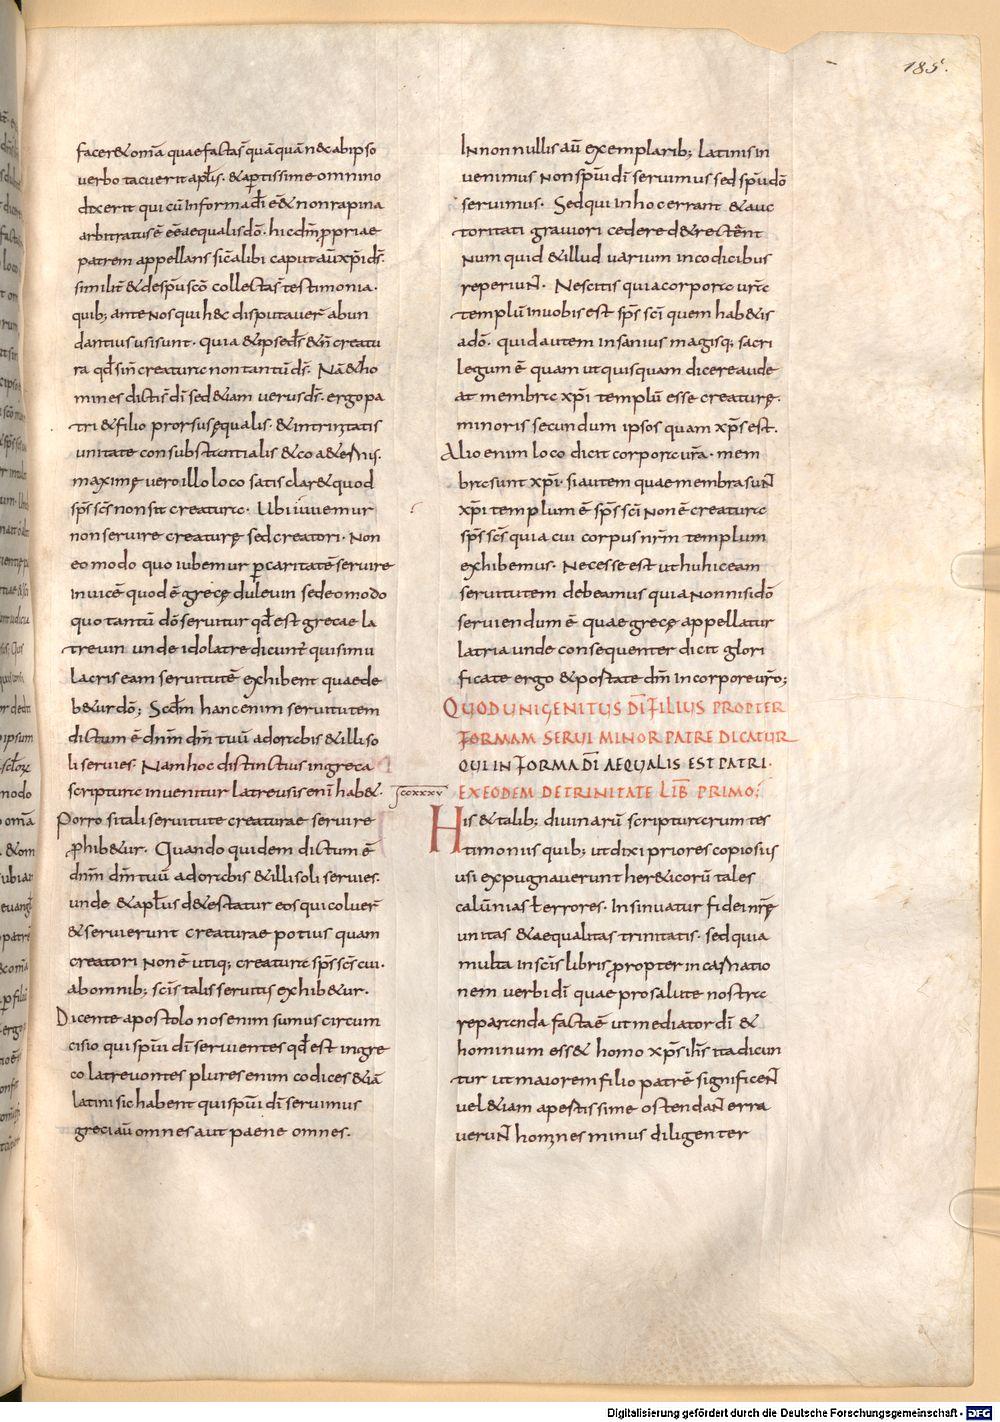 185.
facer& om̄a quae facta s̄ quāquā n& ab ipso
verbo tacuerit apl̄is. & aptissime omnino
dixerit qui cū in forma d̄i ēē& non rapina
arbitratus ē ēē aequalis dō. hic d̄m proprie
patrem appellans sic alibi caput aū xp̄i d̄s.
similit̄ & de sp̄u sc̄o collecta s̄ testimonia.
quib; ante nos qui h&c disputaver̄ abun
dantius usi sunt. quia & ipse d̄s & n̄ creatu
ra qd̄ si n̄ creatura non tantū d̄s. Nā & ho
mines dicti s̄ d̄i sed &iam verus d̄s. ergo pa
tri & filio prorsus ęqualis. & in trinitatis
unitate consubstantialis & coaet&nus.
maximę vero illo loco satis clar& quod
sp̄s sc̄s non sit creatura. Ubi iubemur
non servire creaturę sed creatori. Non
eo modo quo iubemur p caritatē servire
invicē quod ē grecę duleuin sed eo modo
quo tantū dō servitur qd̄ est grecae la
treuin unde idolatre dicunt̄ qui simu
lacris eam servitutē exhibent quae de
b&ur dō; Scd̄m hanc enim servitutem
dictum ē dn̄m dm̄ tuū adorabis & illi so
li servies. Nam hoc distinctius in greca
scriptura invenitur latreusis eni hab&.
Porro si tali servitute creaturae servire
phib&ur. Quando quidem dictum ē
dn̄m dm̄ tuū adorabis & illi soli servies.
unde & apl̄us d&estatur eos qui coluer̄
& servierunt creaturae potius quam
creatori Non ē utiq; creatura sp̄s sc̄s cui.
ab omnib; sc̄is talis servitus exhib&ur.
Dicente apostolo nos enim sumus circum
cisio qui sp̄ui d̄i servientes qd̄ est in gre
co latreuontes plures enim codices &iā
latini sic habent qui sp̄ui d̄i servimus
greci aū omnes aut paene omnes.
In non nullis aū exemplarib; latinis in
venimus Non sp̄ui d̄i servimus sed sp̄u dō
servimus. Sed qui in hoc errant & auc
toritati graviori cedere d&rectent
Num quid & illud varium in codicibus
reperiuNT. Nescitis quia corpora vr̄a
templū in vobis est sp̄s sc̄i quem hab&is
a dō. quid autem insanius magisq; sacri
legum ē quam ut quisquam dicere aude
at membra xp̄i templū esse creaturę.
minoris secundum ipsos quam xp̄s est.
Alio enim loco dicit corpora vr̄a. mem
bra sunt xp̄i. si autem quae membra suNT
xp̄i templum ē sp̄s sc̄i Non ē creatura
sp̄s sc̄s quia cui corpus nr̄m templum
exhibemus. Necesse est ut huic eam
servitutem debeamus qua Non nisi dō
serviendum ē quae grecę appellatur
latria unde consequenter dicit glori
ficate ergo & portate dm̄ in corpore vr̄o;
QUOD UNIGENITUS D̄I FILIUS PROPTER
FORMAM SERVI MINOR PATRE DICATUR
QUI IN FORMA D̄I AEQUALIS EST PATRI.
EX EODEM DE TRINITATE LIB̄ PRIMO;
ccxxxv
His & talib; divinarū scripturarum tes
timoniis quib; ut dixi priores copiosius
usi expugnaverunt her&icorū tales
calūnias t errores. Insinuatur fidei nr̄ę
unitas & aequalitas trinitatis. sed quia
multa in sc̄is libris propter incarnatio
nem verbi d̄i quae pro salute nostra
reparanda facta ē ut mediator d̄i &
hominum ess& homo xp̄s ih̄s ita dicun
tur ut maiorem filio patrē significeNT
vel &iam apertissime ostendaNT erra
veruNT homines minus diligenter
Digitalisierung gefördert durch die Deutsche Forschungsgemeinschaft - DFG